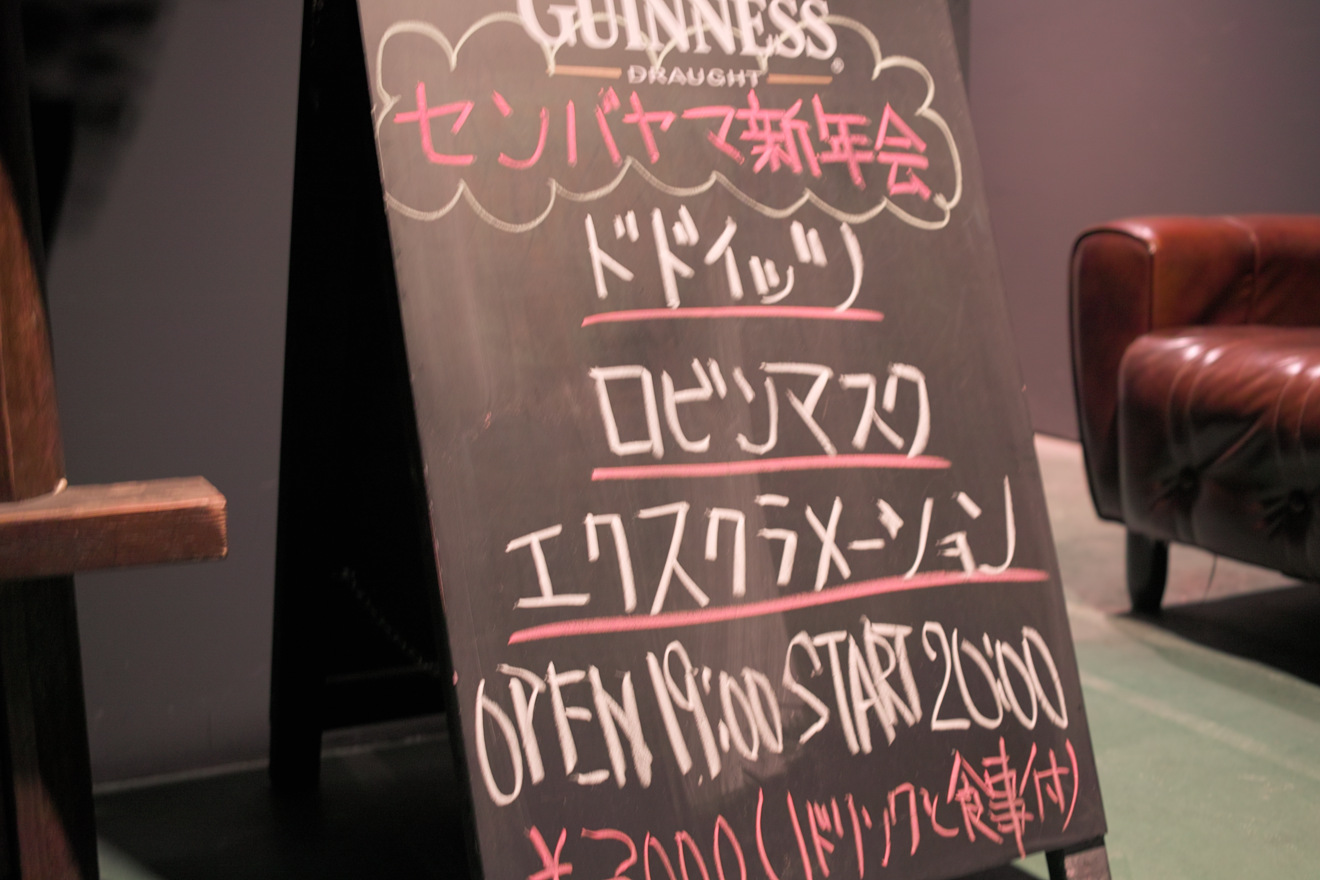 GUINNESS
DRAUGHT
センバヤマ新年会
ドドイッツ
ロビンマスク
エクスクラメーション
OPEN 19:00 START 20:00
¥2000(1ドリンクと食事付)